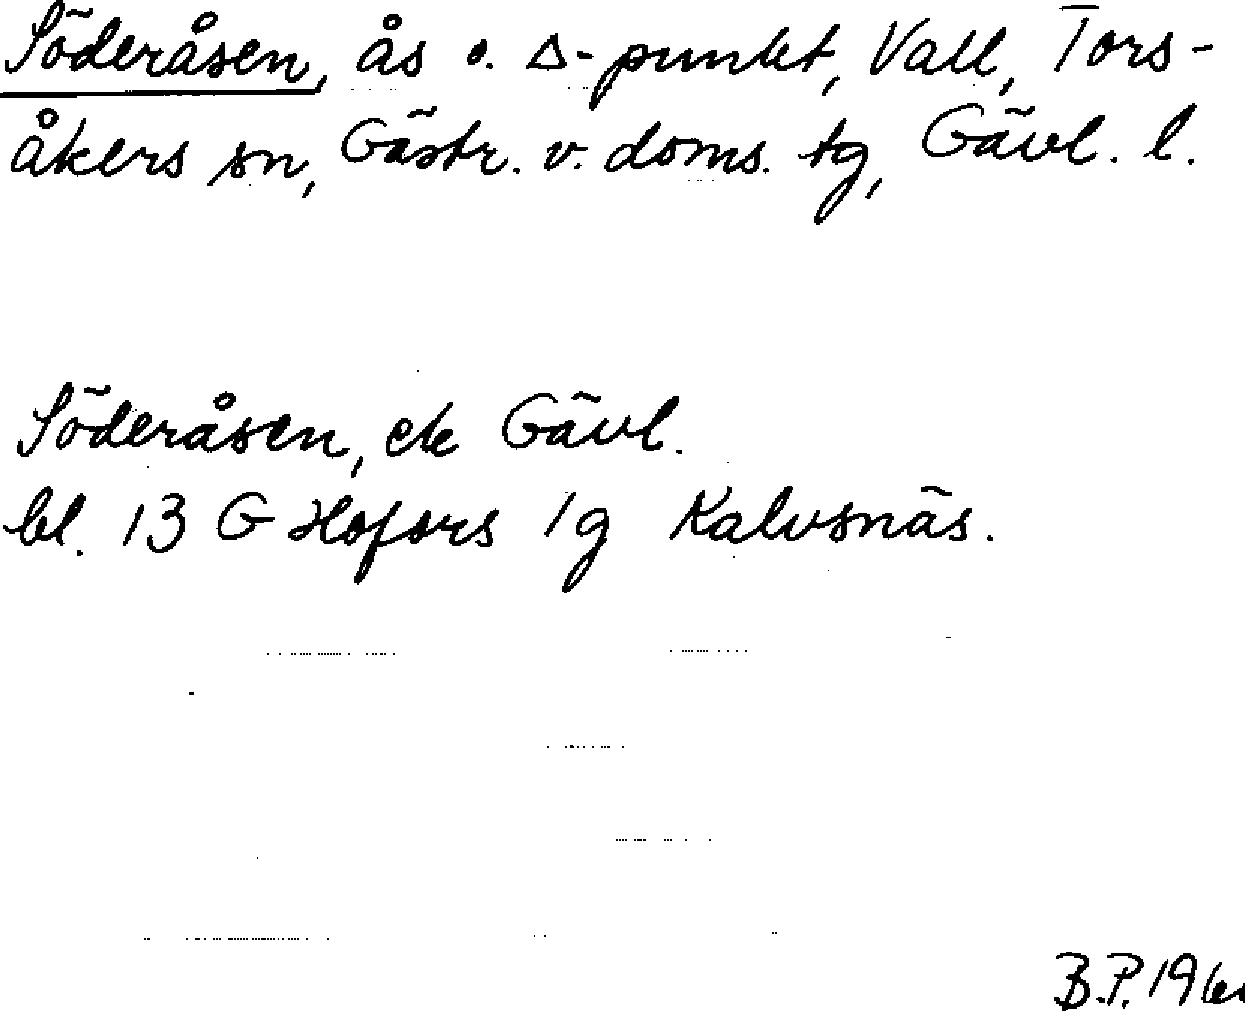 Söderåsen, ås o. Δ-punkt, Vall, Tors-
åkers sn, Gästr. v. doms. tg, Gävl. l.
Söderåsen, ek Gävl.
bl. 13 G Hofors 1g Kalvsnäs.
B.P.